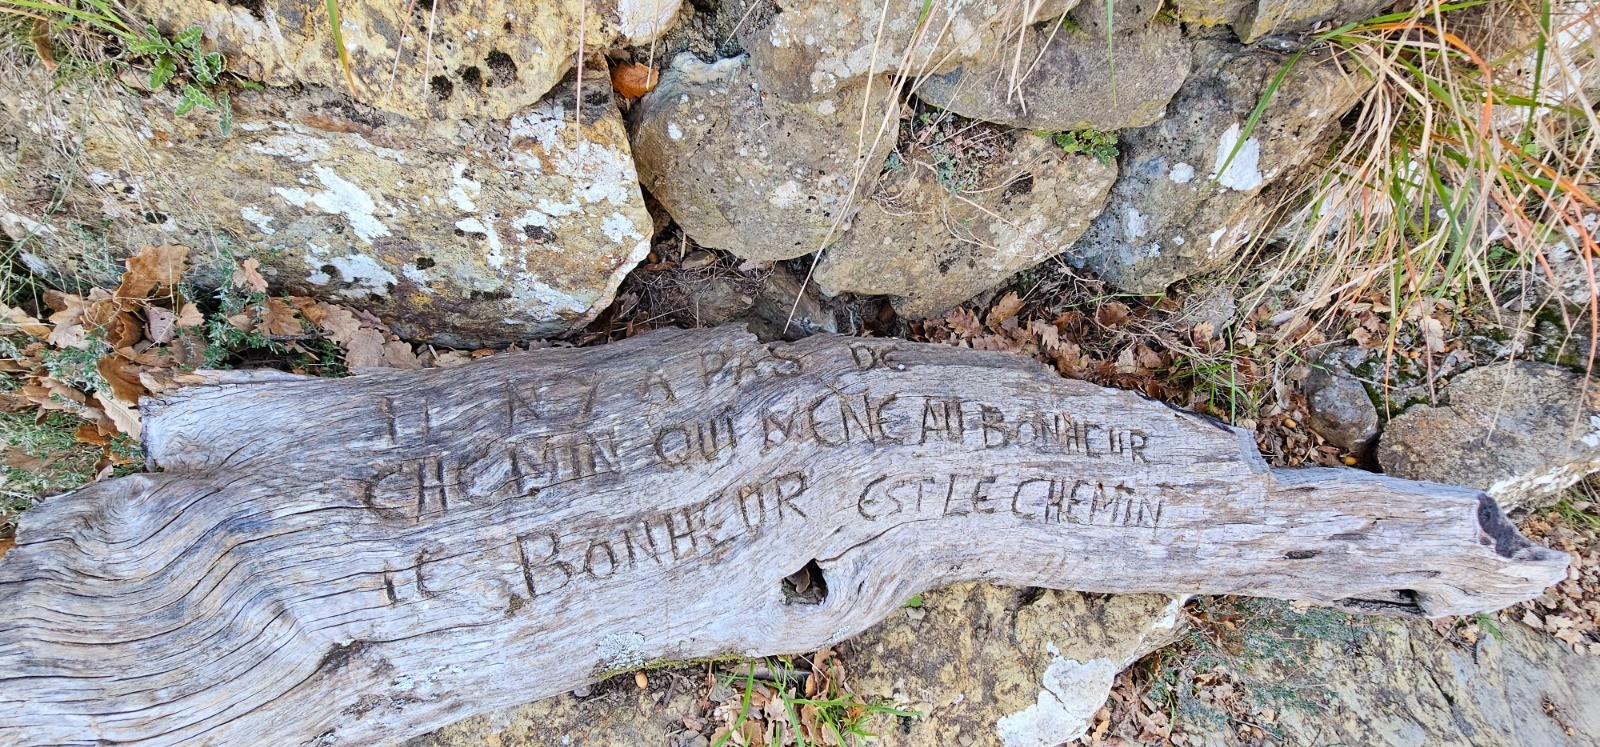 IL N'Y A PAS DE
CHEMIN QUI MÈNE AU BONHEUR
LE BONHEUR EST LE CHEMIN